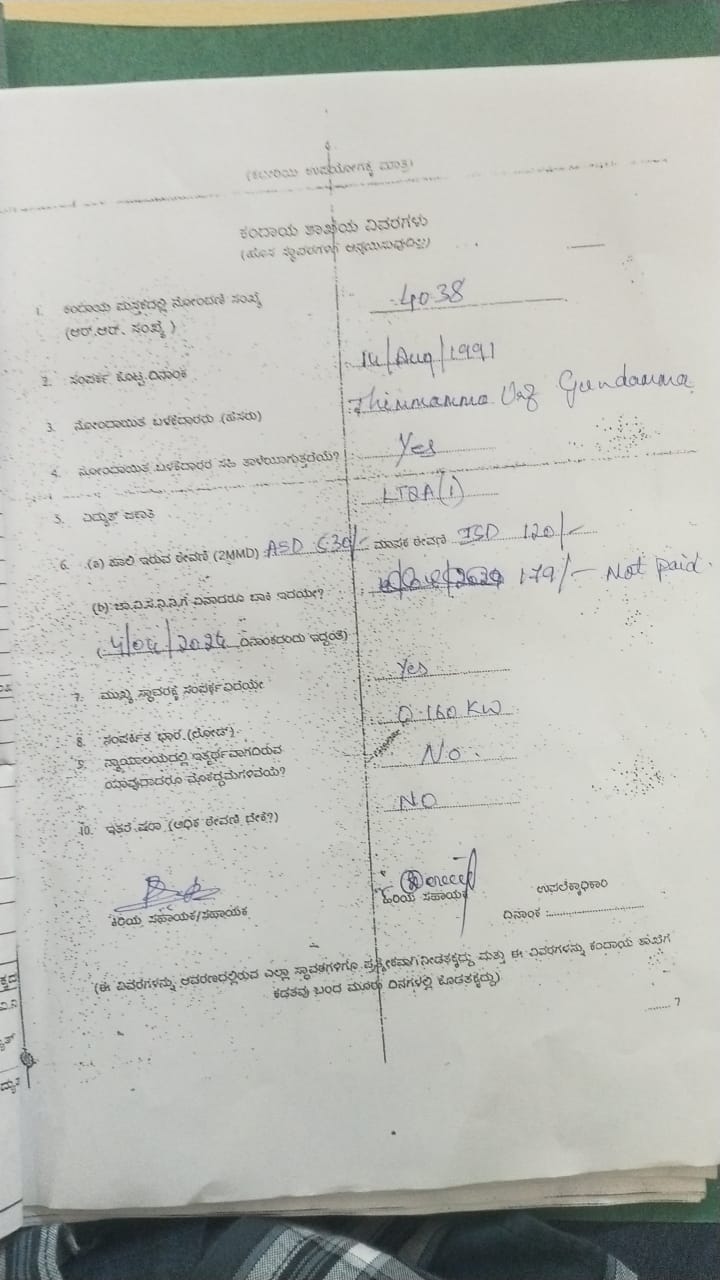 (ಕಛೇರಿಯ ಉಪಯೋಗಕ್ಕೆ ಮಾತ್ರ)
ಕಂದಾಯ ಶಾಖೆಯ ವಿವರಗಳು
(ಹೊಸ ಸ್ಥಾವರಗಳಿಗೆ ಅನ್ವಯಿಸುವುದಿಲ್ಲ)
1. ಕಂದಾಯ ಪುಸ್ತಕದಲ್ಲಿ ನೋಂದಣಿ ಸಂಖ್ಯೆ 4038
(ಆರ್.ಆರ್. ಸಂಖ್ಯೆ)
2. ಸಂಪರ್ಕ ಕೊಟ್ಟ ದಿನಾಂಕ 14/Aug/1991
3. ನೋಂದಾಯಿತ ಬಳಕೆದಾರರು (ಹೆಸರು) Thimmamma Gundamma
4. ನೋಂದಾಯಿತ ಬಳಕೆದಾರರ ಸಹಿ ತಾಳೆಯಾಗುತ್ತದೆಯೆ? Yes
5. ವಿದ್ಯುತ್ ಜಕಾತಿ
6. (a) ಹಾಲಿ ಇರುವ ಠೇವಣಿ (2MMD) ASD 530/- ಮಾಪಕ ಠೇವಣಿ ISD 120/-
(b) ಚಾ.ವಿ.ಸ.ನಿ.ನಿ.ಗೆ ಏನಾದರೂ ಬಾಕಿ ಇದೆಯೇ? 179/- Not paid.
( 4/04/2024 ದಿನಾಂಕದಂದು ಇದ್ದಂತೆ)
7. ಮುಖ್ಯ ಸ್ಥಾವರಕ್ಕೆ ಸಂಪರ್ಕವಿದೆಯೇ Yes
8. ಸಂಪರ್ಕಿತ ಭಾರ (ಲೋಡ್) 0.160 KW
9. ನ್ಯಾಯಾಲಯದಲ್ಲಿ ಇತ್ಯರ್ಥವಾಗದಿರುವ No.
ಯಾವುದಾದರೂ ಮೊಕದ್ದಮೆಗಳಿವೆಯೆ?
10. ಇತರೆ ಷರಾ (ಅಧಿಕ ಠೇವಣಿ ಬೇಕೆ?) NO
ಕಿರಿಯ ಸಹಾಯಕ/ಸಹಾಯಕ ಹಿರಿಯ ಸಹಾಯಕ ಉಪಲೆಕ್ಕಾಧಿಕಾರಿ
ದಿನಾಂಕ :
(ಈ ವಿವರಗಳನ್ನು ಆವರಣದಲ್ಲಿರುವ ಎಲ್ಲಾ ಸ್ಥಾವರಗಳಿಗೂ ಪ್ರತ್ಯೇಕವಾಗಿ ನೀಡತಕ್ಕದ್ದು ಮತ್ತು ಈ ವಿವರಗಳನ್ನು ಕಂದಾಯ ಶಾಖೆಗೆ
ಕಡತವು ಬಂದ ಮೂರು ದಿನಗಳಲ್ಲಿ ಕೊಡತಕ್ಕದ್ದು)
........ 7